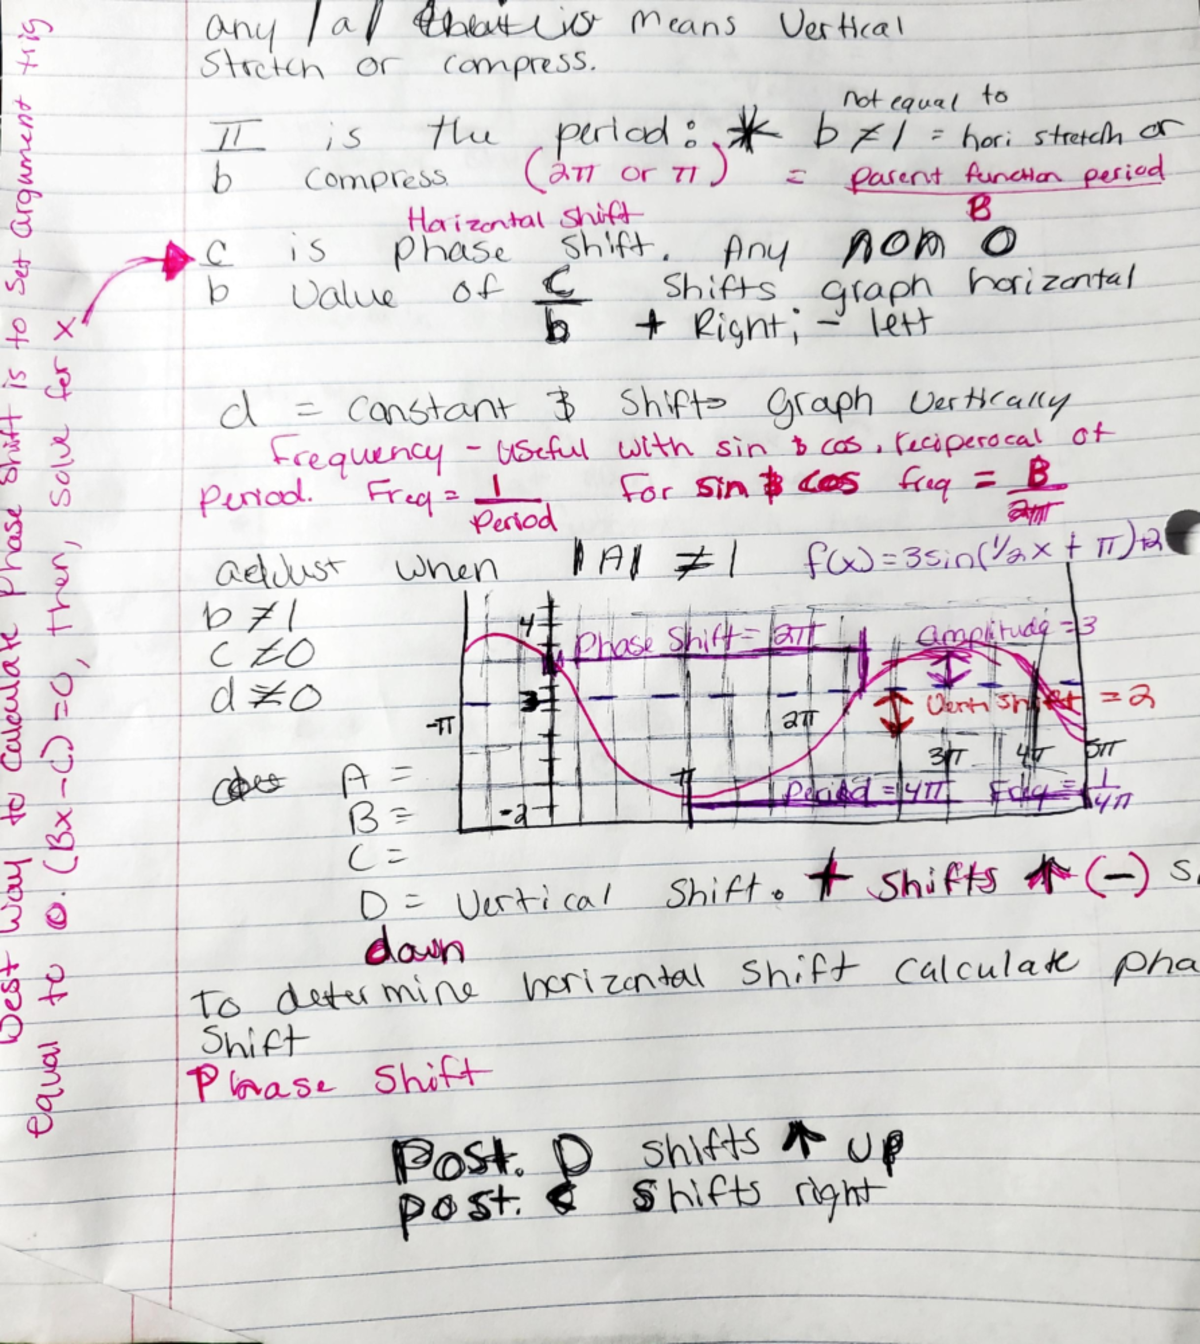 any |a| that is means Vertical
Stretch or compress.
not equal to
π/b is the period: * b ≠ 1 = hori stretch or
compress (2π or π) = parent function period / B
Horizontal Shift
c/b is phase shift. Any non 0
Value of c/b shifts graph horizontal
+ Right; - left
d = constant & Shifts graph vertically
Frequency - useful with sin & cos, reciperocal of
Period. Freq = 1/Period For sin & cos freq = B/2π
adjust when |A| ≠ 1 f(x) = 3sin(1/2x + π)+2
b ≠ 1
c ≠ 0
d ≠ 0
4
Phase Shift = 2π
amplitude = 3
3
Vert shift = 2
-π
π
2π
3π
4π
5π
-2
Period = 4π Freq = 1/4π
A =
B =
C =
D = Vertical Shift. + Shifts ↑ (-) s
down
To determine horizontal shift calculate pha
Shift
Phase Shift
Post. D shifts ↑ up
post. C shifts right
Best way to calculate Phase Shift is to set argument trig
equal to 0. (Bx - C) = 0, then, solve for x